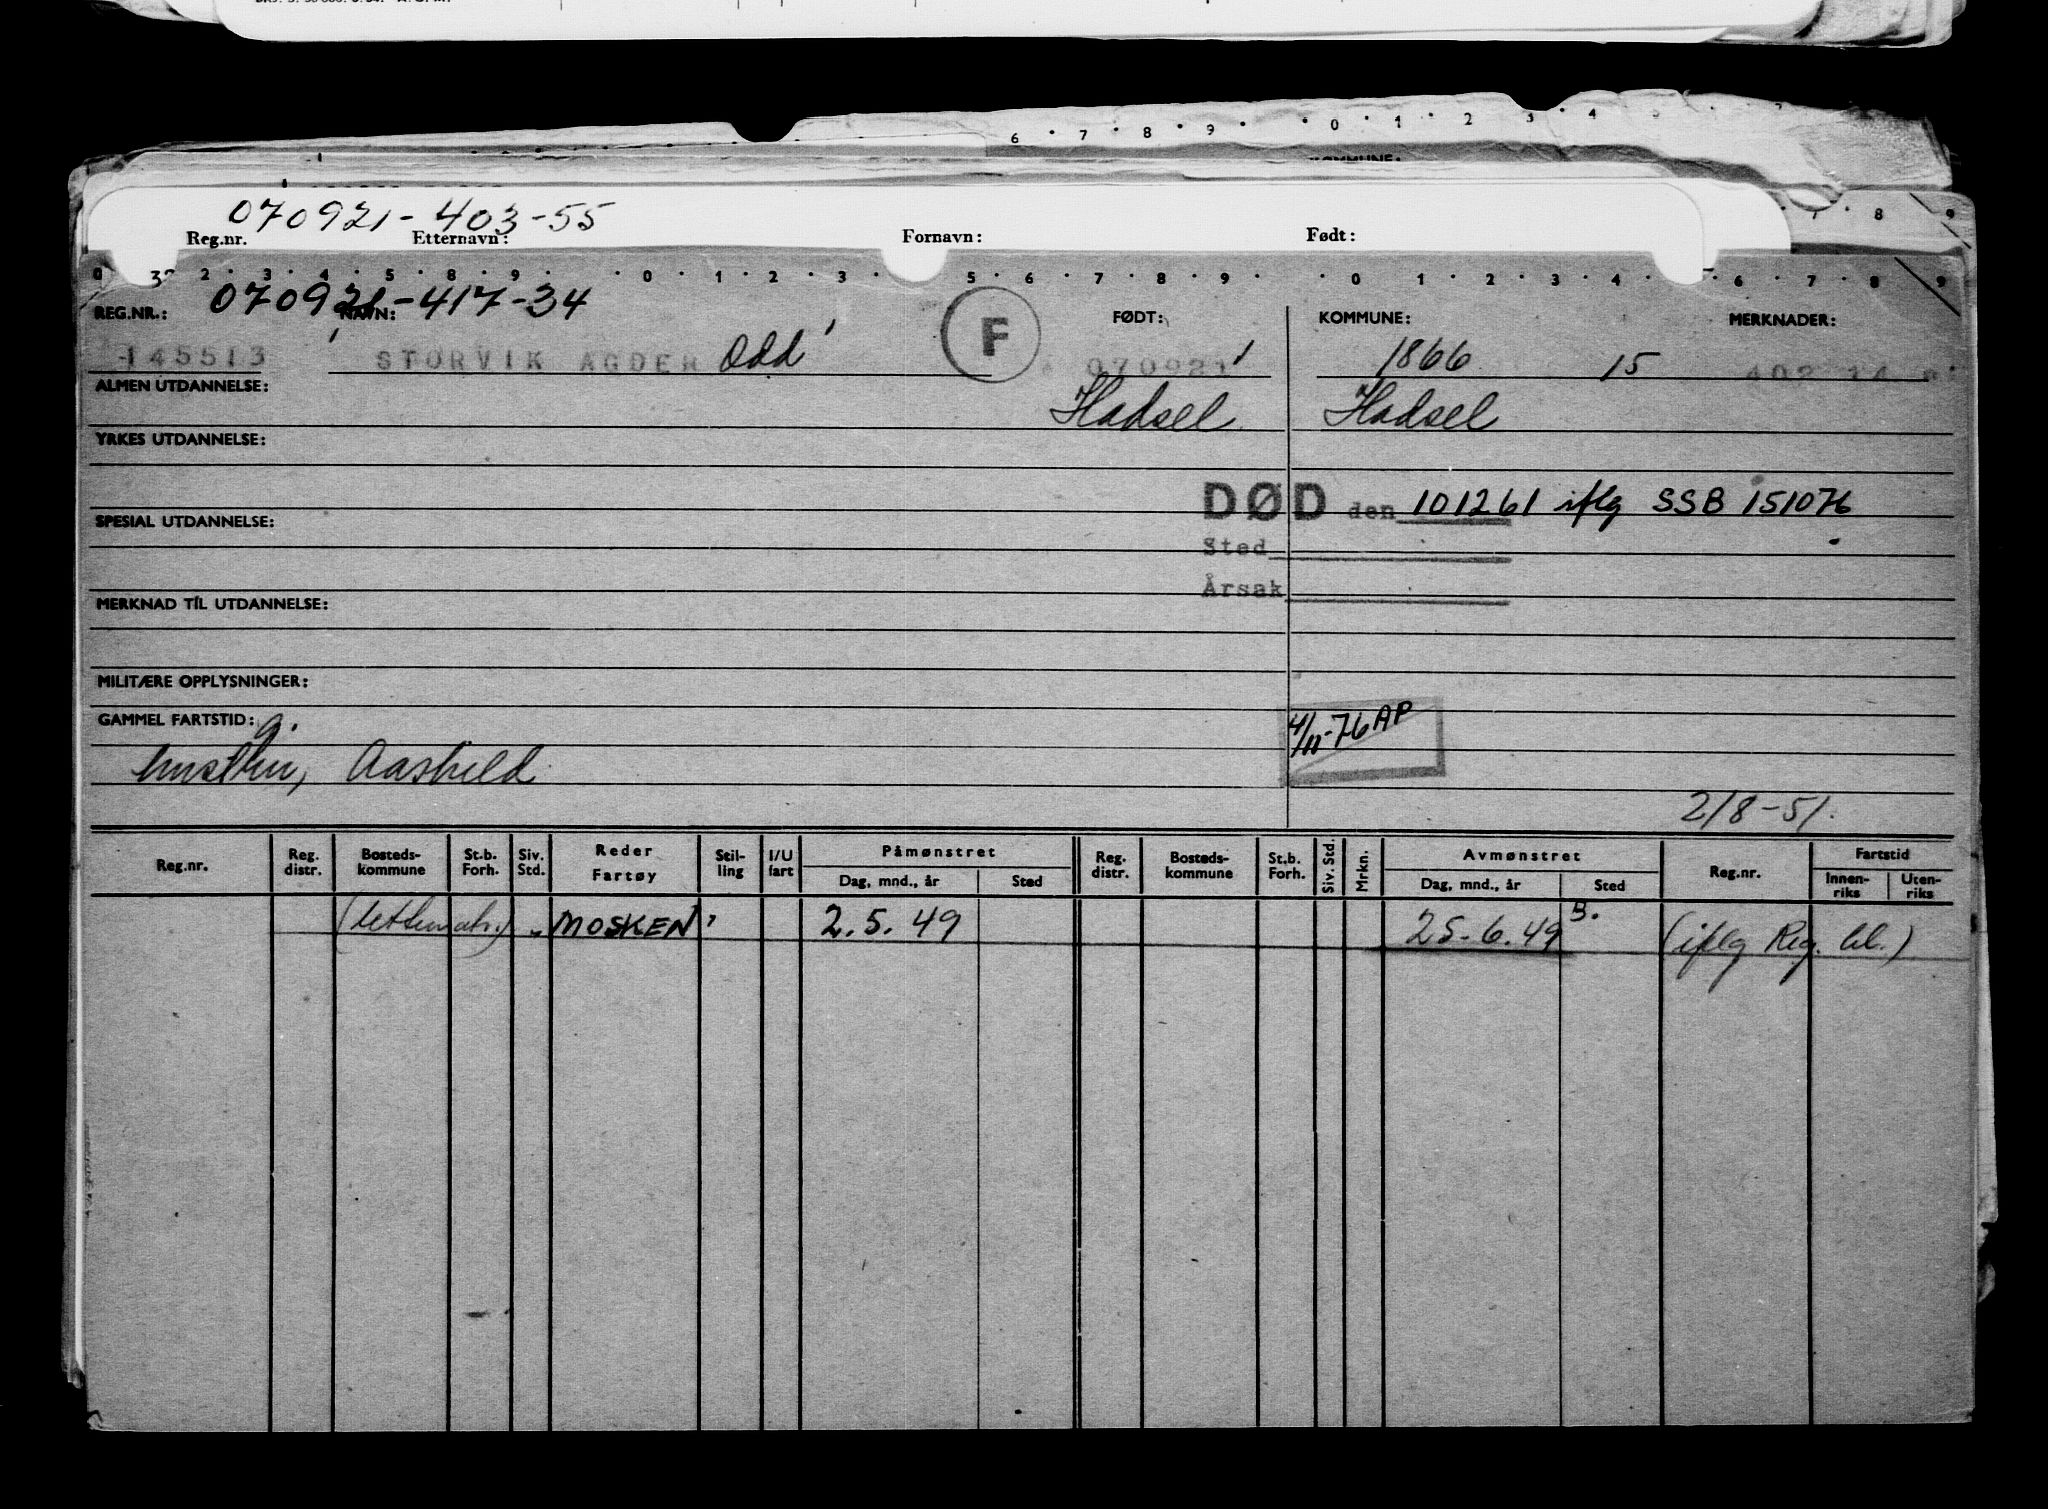 6 · 7 · 8 · 9 · · 0 · 1 · 2 3 · 4
KOMMUNE:
8 9
070921-403-55
Reg.nr. Etternavn: Fornavn: Født:
0 2 · 3 · 4 · 5 · 8 · 9 · · 0 · 1 · 2 · 3 · 5 · 6 · 7 · 8 · 9 · · 0 · 1 · 2 · 3 · 4 · 6 · 7 · 8 · 9
070921-417-34
REG.NR.: NAVN: F FØDT: KOMMUNE: MERKNADER:
145513 STORVIK AGDER Odd 070921 1866 15
ALMEN UTDANNELSE: Hadsel Hadsel
YRKES UTDANNELSE:
DØD den 101261 iflg SSB 151076
SPESIAL UTDANNELSE:
Sted
Årsak
MERKNAD TIL UTDANNELSE:
MILITÆRE OPPLYSNINGER:
GAMMEL FARTSTID: g.
4/11-76 AP
Aashild
2/8-51.
Reg.nr. Reg. distr. Bosteds-kommune St.b. Forh. Siv. Std. Reder Fartøy Stil-ling I/U fart Påmønstret Dag, mnd., år Sted Reg. distr. Bosteds-kommune St.b. Forh. Siv. Std. Mrkn. Avmønstret Dag, mnd., år Sted Reg.nr. Fartstid Innen-riks Uten-riks
"MOSKEN" 2.5.49 25.6.49 B. (iflg Reg. bl.)